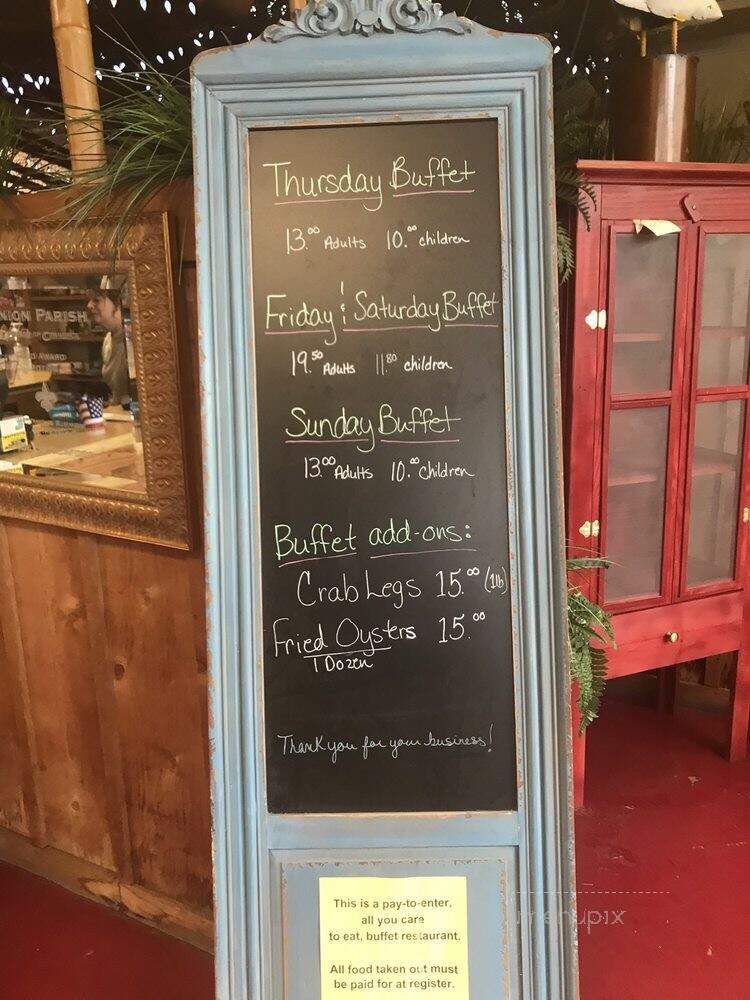 Thursday Buffet
13.00 Adults 10.00 children
Friday & Saturday Buffet
19.50 Adults 11.80 children
Sunday Buffet
13.00 Adults 10.00 children
Buffet add-ons:
Crab Legs 15.00 (1lb)
Fried Oysters 15.00
1 Dozen
Thank you for your business!
This is a pay-to-enter,
all you care
to eat, buffet restaurant.
All food taken out must
be paid for at register.
NION PARISH
menupix